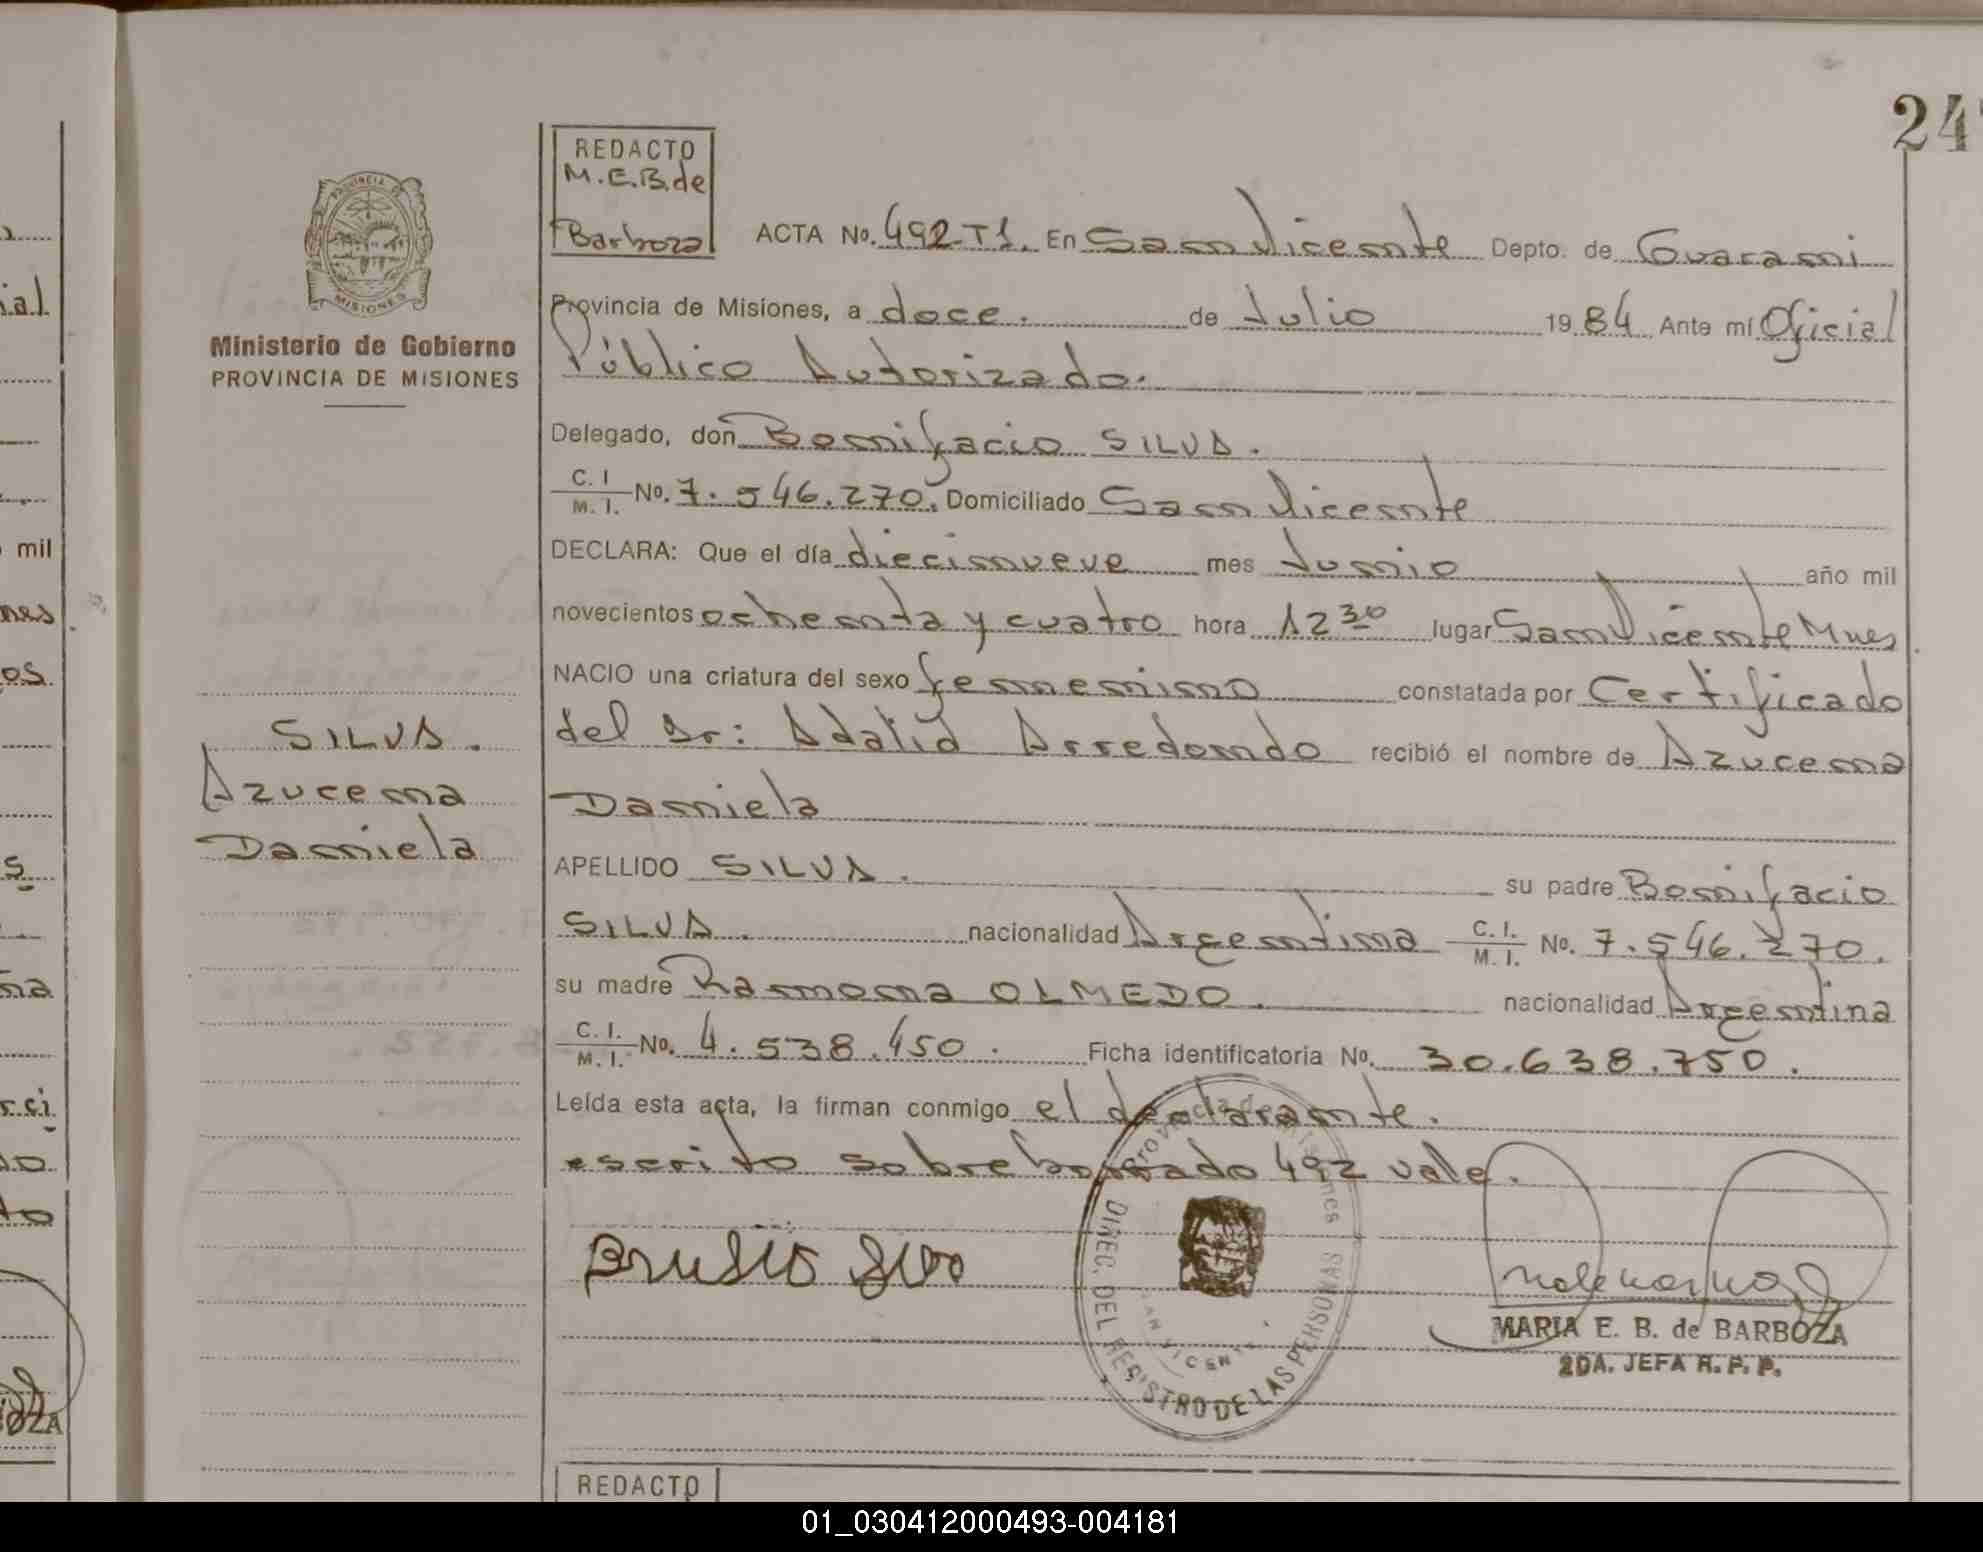 247
REDACTO
M.E.B. de
Barboza
ACTA No. 492-T1. En San Vicente Depto. de Guarani
Provincia de Misiones, a doce. de Julio 1984 Ante mí Oficial
Público Autorizado.
Delegado, don Bonifacio SILVA.
C. I. / M. I. No. 7.546.270. Domiciliado San Vicente
DECLARA: Que el día diecinueve mes Junio año mil
novecientos ochenta y cuatro hora 12 30 lugar San Vicente Mnes
NACIO una criatura del sexo femenino constatada por Certificado
del Dr: Adalid Arredondo recibió el nombre de Azucena
Daniela
APELLIDO SILVA. su padre Bonifacio
SILVA. nacionalidad Argentina C. I. / M. I. No. 7.546.270.
su madre Ramona OLMEDO. nacionalidad Argentina
C. I. / M. I. No. 4.538.450. Ficha identificatoria No. 30.638.750.
Leída esta acta, la firman conmigo el declarante.
escrito sobreborrado 492 vale.
MARIA E. B. de BARBOZA
2DA. JEFA R. P. P.
Provincia de Misiones
DIREC. DEL REGISTRO DE LAS PERSONAS
SAN VICENTE
REDACTO
PROVINCIA DE
MISIONES
Ministerio de Gobierno
PROVINCIA DE MISIONES
SILVA.
Azucena
Daniela
mil
01_030412000493-004181